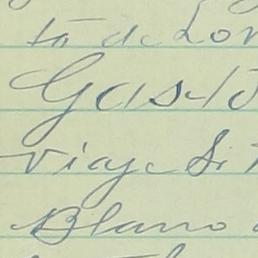 ta de Lon
Gasto
viaje Si
Blano